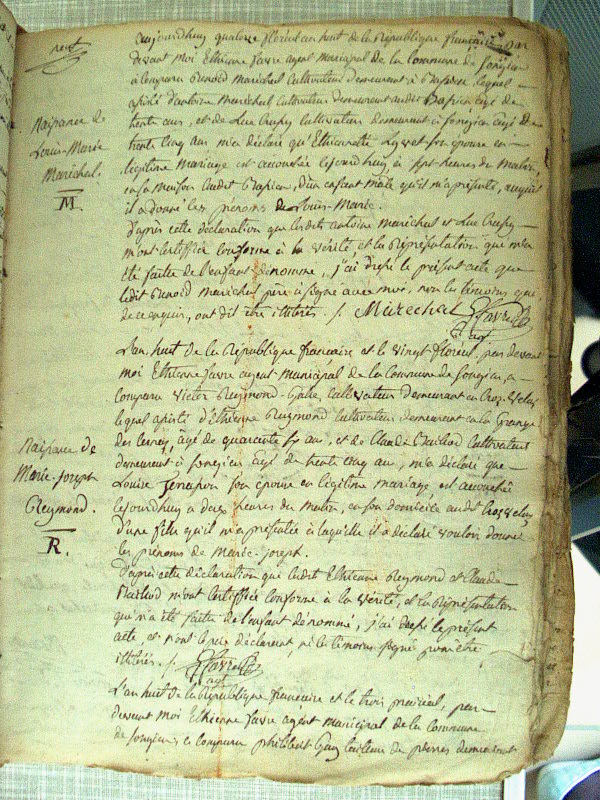 aujourdhuy quatorze floreal an huit de la République française par
devant moi Ethienne favre agent municipal de la Commune de Songieu
a comparu Benoid Marechal Cultivateur demeurant à Bassieu, lequel
assisté d'antoine Marechal Cultivateur demeurant audit Bassieu agé de
trente ans, et de Luc Cruspy Cultivateur demeurant à songieu agé de
Naissance de
trente cinq ans m'a déclaré qu'Ethiennette son épouse en
Louis-Marie
légitime mariage est accouchée cejourdhuy, à sept heures du matin,
Marechal.
en sa maison audit Bassieu, d'un enfant male qu'il m'a présenté, auquel
M.
il a donné les prénoms de Louis-Marie.
d'après cette déclaration que lesdits antoine maréchal et Luc Cruspy
m'ont Certiffiée conforme à la vérité, et la Représentation que m'a
été faitte de l'enfant dénommé, j'ai dressé le présent acte que
ledit Benoid marechal père à signé avec moi, non les témoins que
de ce enquis, ont dit être illiterés. /. Marechal favre
agt
L'an huit de la République française et le vingt floreal, par devant
moi Ethienne favre agent municipal de la Commune de songieu, a
comparu Victor Reymond-Galix, Cultivateur demeurant au
lequel assisté d'éthienne Reymond Cultivateur demeurant en la Grange
des agé de quarante six ans, et de Claude Bailiod Cultivateur
Naissance de
demeurent à songieu agé de trente cinq ans, m'a déclaré que
Marie-joseph
Louise son épouse en légitime mariage, est accouchée
Reymond.
cejourdhuy à deux heures du matin, en son domicile audit
R.
d'une fille qu'il m'a présentée à laquelle il a déclaré vouloir donner
les prénoms de marie-joseph.
d'après cette déclaration que ledit Ethienne Reymond et Claude
Bailiod m'ont Certiffiée Conforme à la Vérité, et la Représentation
qui m'a été faitte de l'enfant dénommé, j'ai dressé le présent
acte, et n'ont le père déclarent, ni les témoins signé pour être
illiterés. /. favre
agt
L'an huit de la République française et le trois prairial, par
devant moi Ethienne favre agent municipal de la Commune
de songieu, a comparu philibert Guy tailleur de pierres demeurant